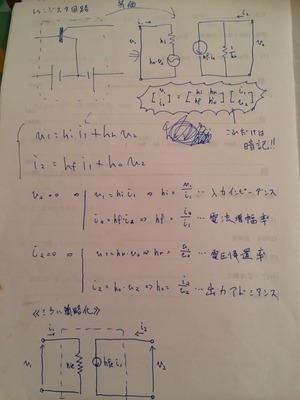 トランジスタ回路
等価
i₁ → ← i₂
v₁ hi hr v₂ hf i₁ 1/ho v₂
[v₁ i₂] = [hi hr hf ho] [i₁ v₂]
これだけは
暗記!!
v₁ = hi i₁ + hr v₂
i₂ = hf i₁ + ho v₂
v₂ = 0 ⇔ v₁ = hi i₁ ⇔ hi = v₁/i₁ … 入力インピーダンス
i₂ = hf i₁ ⇔ hf = i₂/i₁ … 電流増幅率
i₁ = 0 ⇔ v₁ = hr v₂ ⇔ hr = v₁/v₂ … 電圧帰還率
i₂ = ho v₂ ⇔ ho = i₂/v₂ … 出力アドミタンス
《さらに簡略化》
i₁ i₂
v₁ hie hfe i₁ v₂